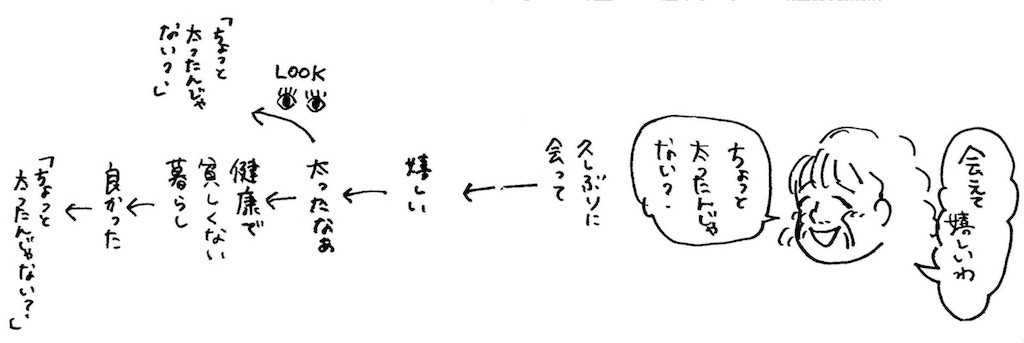 会えて
嬉しいわ
ちょっと
太ったんじゃ
ない?
久しぶりに
会って
嬉しい
太ったなぁ
LOOK
「ちょっと
太ったんじゃ
ない?」
健康で
貧しくない
暮らし
良かった
「ちょっと
太ったんじゃない?」